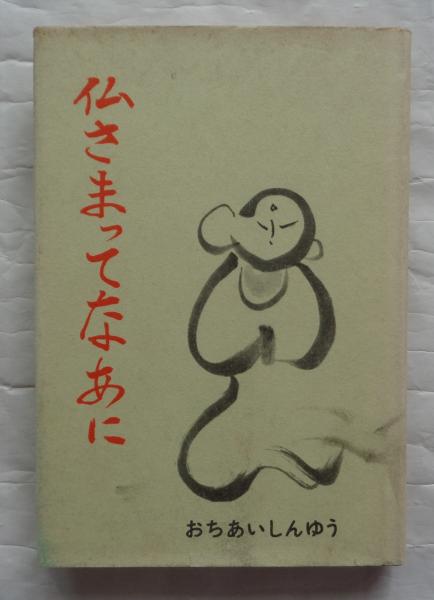 仏さまってなあに
おちあいしんゆう